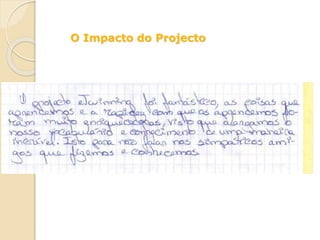 O Impacto do Projecto
O projecto eTwinning foi fantástico, as coisas que
aprendemos e a rapidez com que as aprendemos fo-
ram muito enriquecedoras, visto que alargamos o
nosso vocabulário e conhecimento de uma maneira
incrível. Isto para não falar nos simpáticos ami-
gos que fizemos e conhecemos.